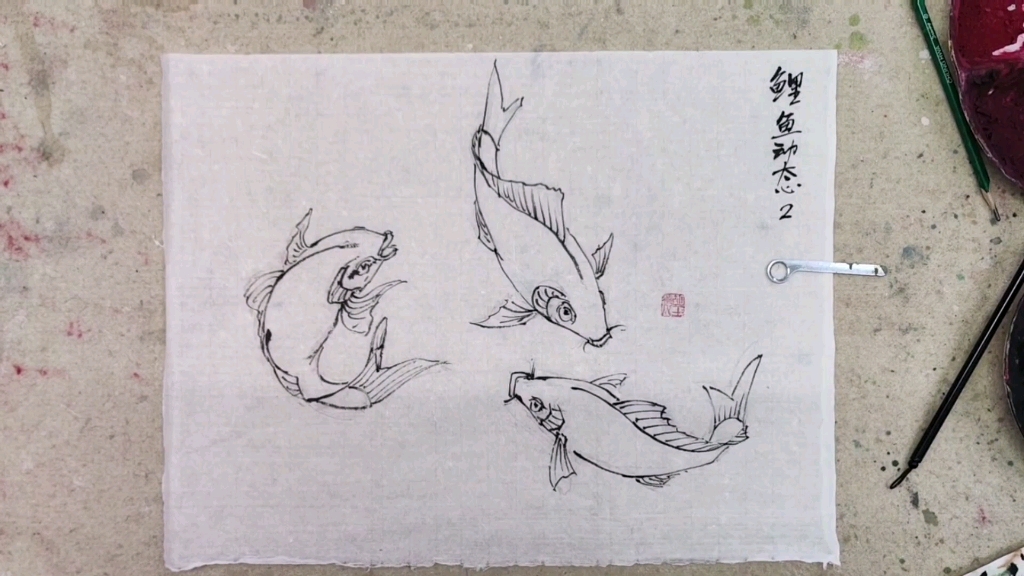 鲤鱼动态2